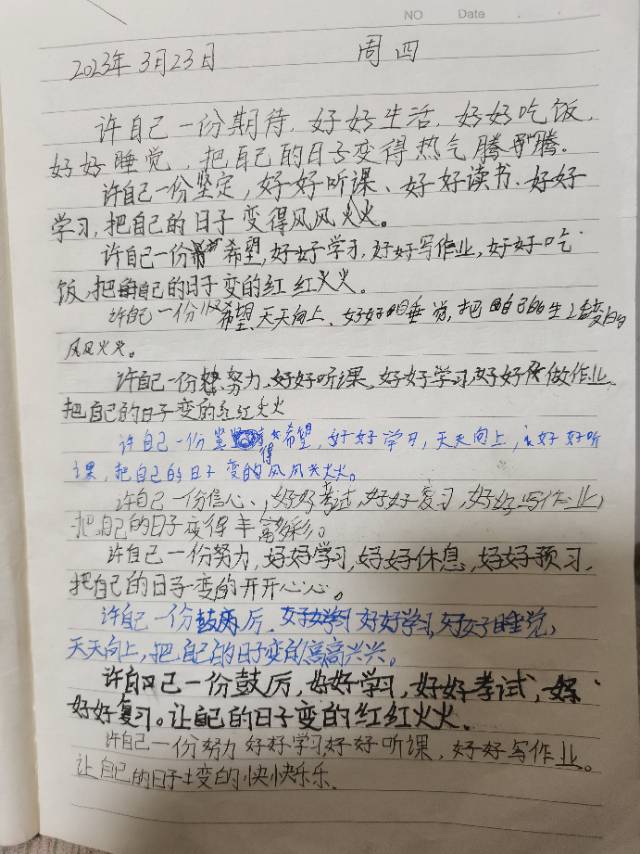 NO Date
2023年3月23日 周四
许自己一份期待，好好生活，好好吃饭，
好好睡觉，把自己的日子变得热气腾腾。
许自己一份坚定，好好听课、好好读书、好好
学习，把自己的日子变得风风火火。
许自己一份希望，好好学习，好好写作业，好好吃
饭，把自己的日子变的红红火火。
许自己一份希望，天天向上，好好睡觉，把自己的生活变的
风风火火。
许自己一份努力，好好听课，好好学习，好好做作业，
把自己的日子变的红红火火
许自己一份希望，好好学习，天天向上，好好听
课，把自己的日子变得风风火火。
许自己一份信心，好好考试，好好复习，好好写作业，
把自己的日子变得丰富多彩。
许自己一份努力，好好学习，好好休息，好好预习，
把自己的日子变的开开心心。
许自己一份鼓厉，好好学习，好好睡觉，
天天向上，把自己的日子变的高高兴兴。
许自己一份鼓厉，好好学习，好好考试，
好好复习。让自己的日子变的红红火火。
许自己一份努力好好学习，好好听课，好好写作业。
让自己的日子变的快快乐乐.